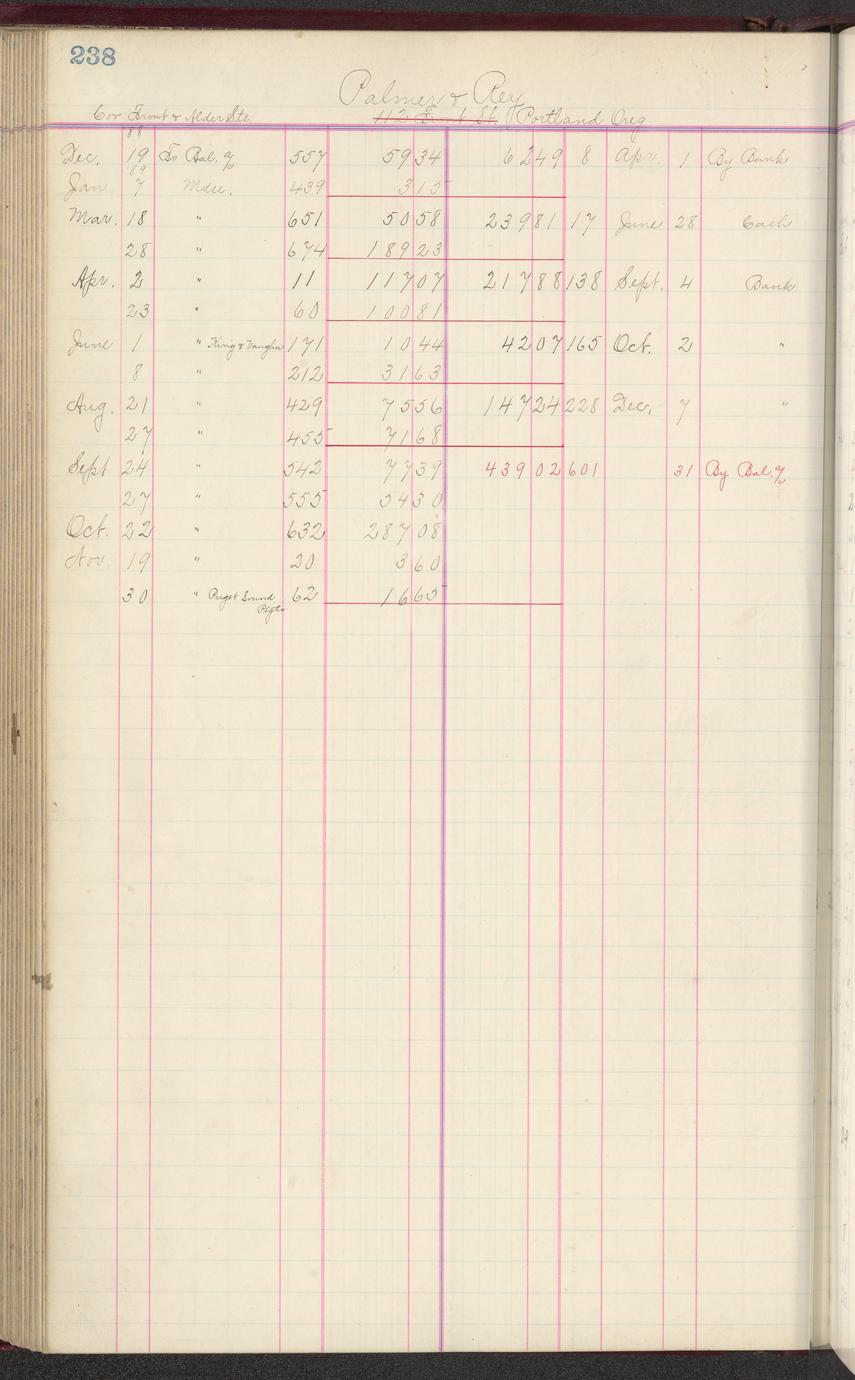 238
Palmer & Rey
Cor Front & Alder Sts. 112 Front St. Portland Oreg
88
Dec. 19 To Bal. % 557 59 34 62 49 8 Apr. 1 By Bank
89
Jan 7 Mdse. 439 3 15
Mar. 18 " 651 50 58 239 81 17 June 28 Cash
28 " 674 189 23
Apr. 2 " 11 117 07 217 88 138 Sept. 4 Bank
23 " 60 100 81
June 1 " King & Vaughn 171 10 44 42 07 165 Oct. 2 "
8 " 212 31 63
Aug. 21 " 429 75 56 147 24 228 Dec. 7 "
27 " 455 71 68
Sept 24 " 542 77 39 439 02 601 31 By Bal. %
27 " 555 54 30
Oct. 22 " 632 287 08
Nov. 19 " 20 3 60
30 " Puget Sound 62 16 65